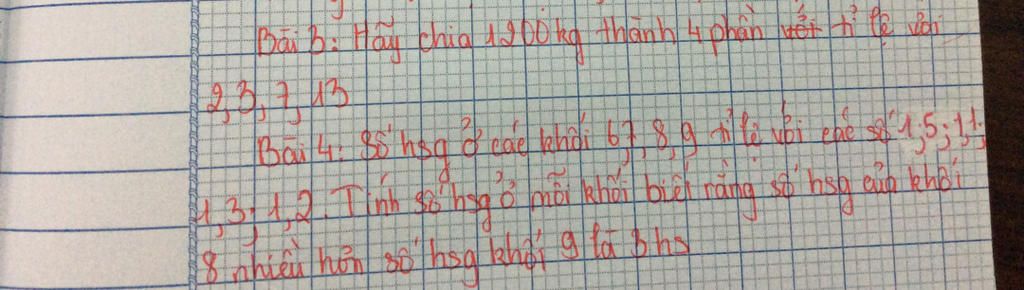 Bài 3: Hãy chia 1200kg thành 4 phần tỉ lệ với
2, 3, 7, 13
Bài 4: Số hsg ở các khối 6,7,8,9 tỉ lệ với các số 1,5; 1,1;
1,3; 1,2. Tính số hsg ở mỗi khối biết rằng số hsg của khối
8 nhiều hơn số hsg khối 9 là 3 hs